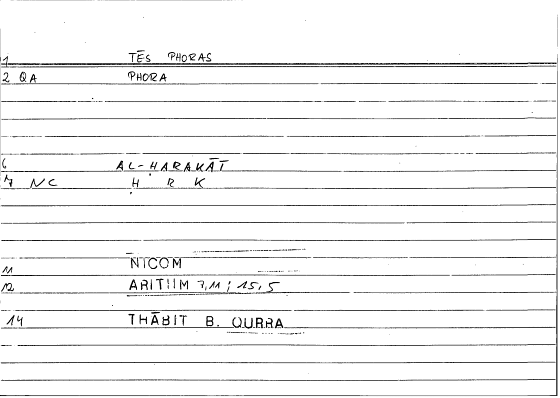 1 TĒS PHORAS
2 QA PHORA
6 AL-ḤARAKĀT
7 NC Ḥ R K
11 NICOM
12 ARITHM 7,11 ; 15,5
14 THĀBIT B. QURRA